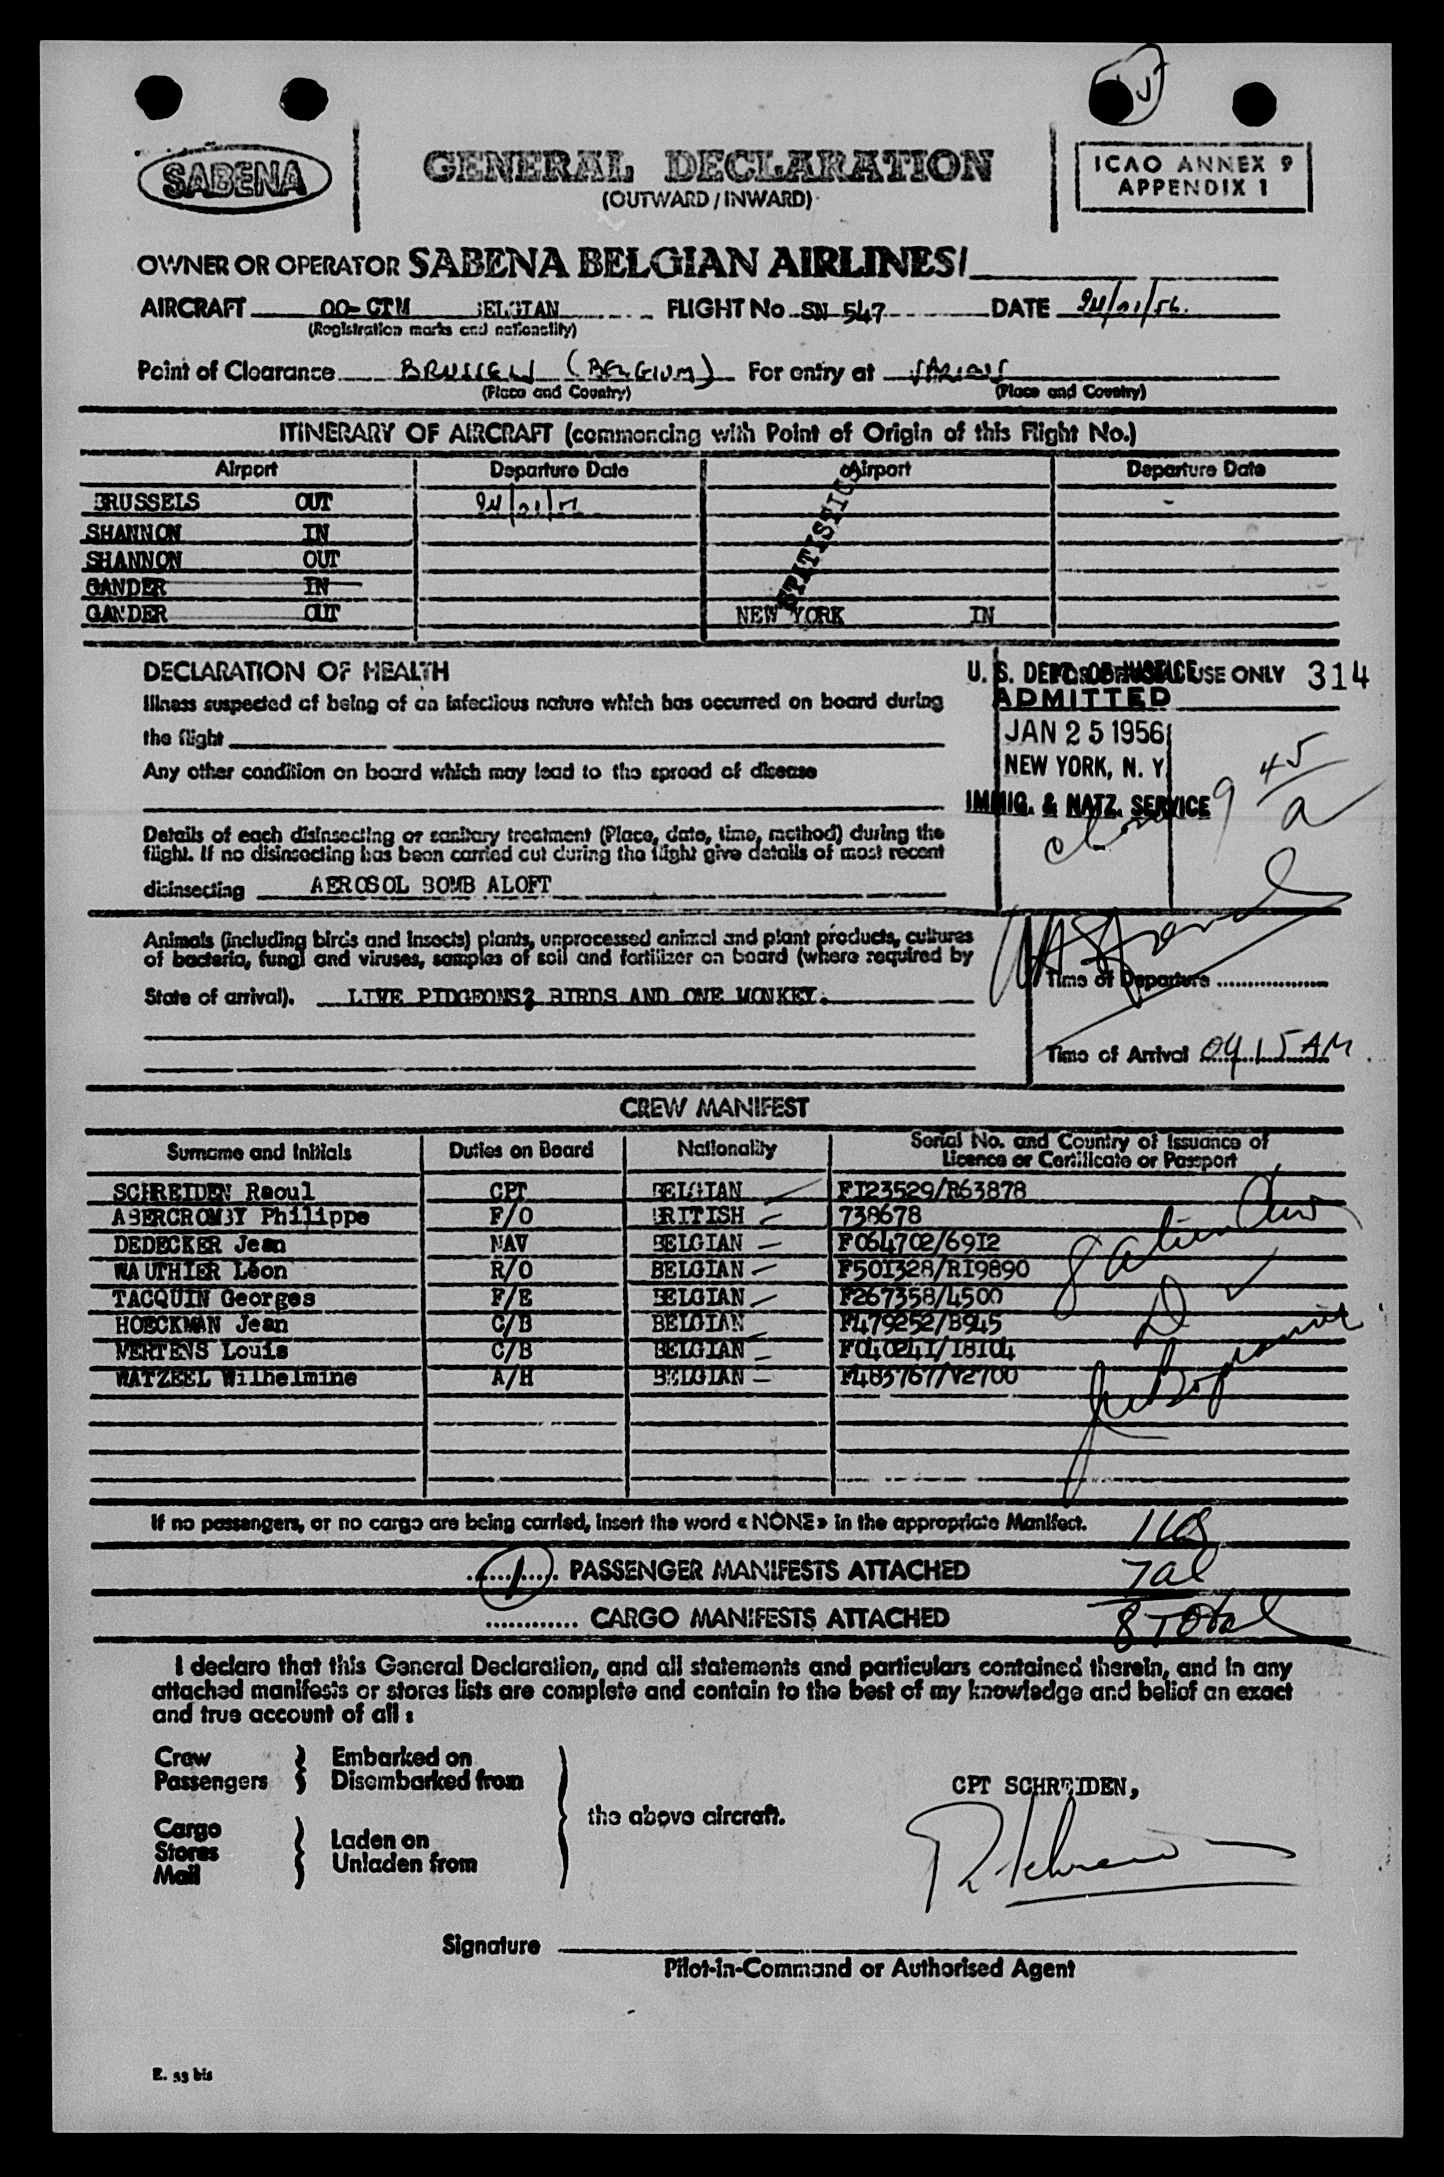 SABENA
GENERAL DECLARATION
(OUTWARD / INWARD)
ICAO ANNEX 9
APPENDIX 1
OWNER OR OPERATOR SABENA BELGIAN AIRLINES/
AIRCRAFT OO-CTM BELGIAN FLIGHT No SN 547 DATE 24/01/56
(Registration marks and nationality)
Point of Clearance BRUSSELS (BELGIUM) For entry at
(Place and Country) (Place and Country)
ITINERARY OF AIRCRAFT (commencing with Point of Origin of this Flight No.)
Airport Departure Date Airport Departure Date
BRUSSELS OUT 24/01/
SHANNON IN
SHANNON OUT
GANDER IN
GANDER OUT NEW YORK IN
STATISTICS
DECLARATION OF HEALTH
Illness suspected of being of an infectious nature which has occurred on board during
the flight
Any other condition on board which may lead to the spread of disease
Details of each disinsecting or sanitary treatment (Place, date, time, method) during the
flight. If no disinsecting has been carried out during the flight give details of most recent
disinsecting AEROSOL BOMB ALOFT
U. S. DEPT. OF JUSTICE USE ONLY 314
ADMITTED
JAN 25 1956
NEW YORK, N. Y.
IMMIG. & NATZ. SERVICE
45
a
9
Animals (including birds and insects) plants, unprocessed animal and plant products, cultures
of bacteria, fungi and viruses, samples of soil and fertilizer on board (where required by
State of arrival). LIVE PIDGEONS? BIRDS AND ONE MONKEY.
Time of Departure
Time of Arrival 0415 AM
CREW MANIFEST
Surname and Initials Duties on Board Nationality Serial No. and Country of Issuance of
Licence or Certificate or Passport
SCHREIDEN Raoul CPT BELGIAN FI23529/R63878
ABERCROMBY Philippe F/O BRITISH 738678
DEDECKER Jean NAV BELGIAN F064702/69I2
WAUTHIER Léon R/O BELGIAN F50I328/RI9890
TACQUIN Georges F/E BELGIAN F267358/4500
HOECKMAN Jean C/B BELGIAN F479252/B945
MERTENS Louis C/B BELGIAN F04024I/I8I04
WATZEEL Wilhelmine A/H BELGIAN F483767/V2700
If no passengers, or no cargo are being carried, insert the word « NONE » in the appropriate Manifest.
1 PASSENGER MANIFESTS ATTACHED
CARGO MANIFESTS ATTACHED
7 al
8 Total
I declare that this General Declaration, and all statements and particulars contained therein, and in any
attached manifests or stores lists are complete and contain to the best of my knowledge and belief an exact
and true account of all :
Crew Embarked on
Passengers Disembarked from
the above aircraft.
Cargo
Stores Laden on
Mail Unladen from
CPT SCHREIDEN,
Signature
Pilot-in-Command or Authorised Agent
E. 33 bis